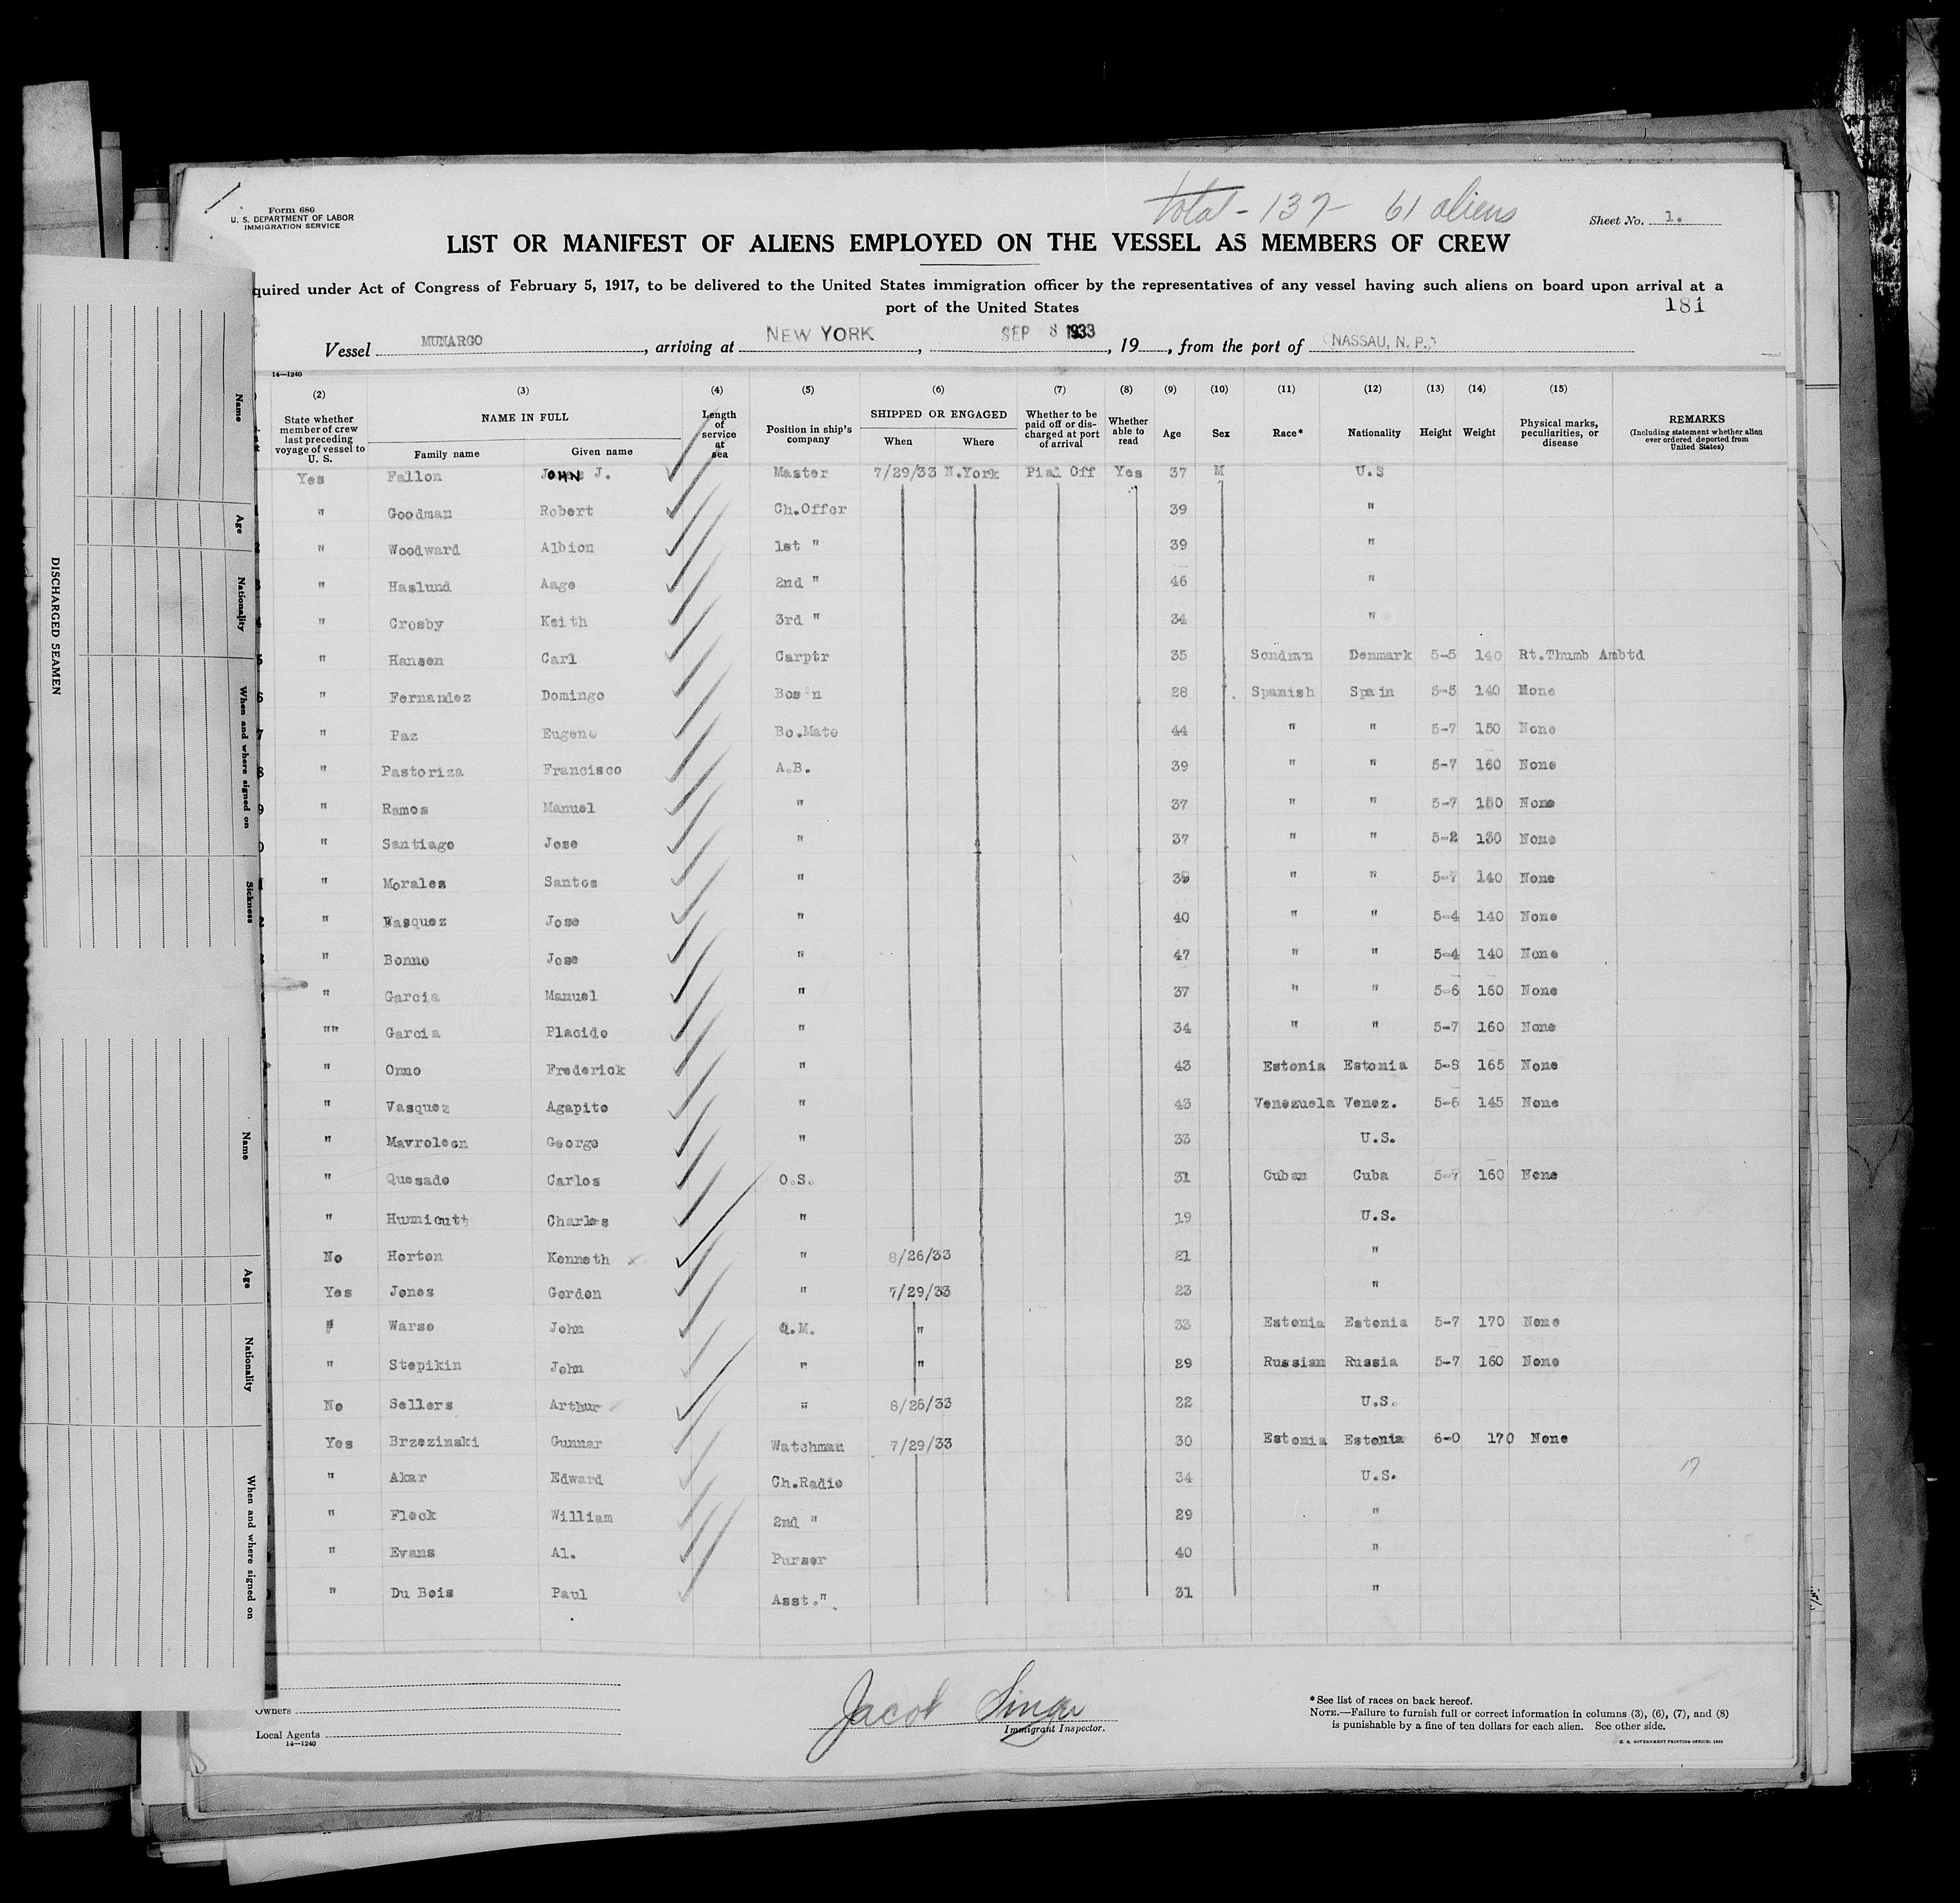 total - 137 - 61 aliens
Form 680
U. S. DEPARTMENT OF LABOR
IMMIGRATION SERVICE
Sheet No. 1.
LIST OR MANIFEST OF ALIENS EMPLOYED ON THE VESSEL AS MEMBERS OF CREW
quired under Act of Congress of February 5, 1917, to be delivered to the United States immigration officer by the representatives of any vessel having such aliens on board upon arrival at a
port of the United States
181
Vessel MUNARGO, arriving at NEW YORK, SEP 8 1933, 19, from the port of NASSAU, N. P.
14—1240
(2) (3) (4) (5) (6) (7) (8) (9) (10) (11) (12) (13) (14) (15)
State whether member of crew last preceding voyage of vessel to U. S. NAME IN FULL Family name Given name Length of service at sea Position in ship's company SHIPPED OR ENGAGED When Where Whether to be paid off or discharged at port of arrival Whether able to read Age Sex Race* Nationality Height Weight Physical marks, peculiarities, or disease REMARKS (Including statement whether alien ever ordered deported from United States)
Yes Fallon JOHN J. Master 7/29/33 N.York Piad Off Yes 37 M U.S
" Goodman Robert Ch.Offer 39 "
" Woodward Albion 1st " 39 "
" Haslund Aage 2nd " 46 "
" Crosby Keith 3rd " 34 "
" Hansen Carl Carptr 35 Scndnvn Denmark 5-5 140 Rt.Thumb Ambtd
" Fernandez Domingo Bos'n 28 Spanish Spain 5-5 140 None
" Paz Eugene Bo.Mate 44 " " 5-7 150 None
" Pastoriza Francisco A.B. 39 " " 5-7 160 None
" Ramos Manuel " 37 " " 5-7 150 None
" Santiago Jose " 37 " " 5-2 130 None
" Morales Santos " " " 5-7 140 None
" Vasquez Jose " 40 " " 5-4 140 None
" Bonne Jose " 47 " " 5-4 140 None
" Garcia Manuel " 37 " " 5-6 160 None
"" Garcia Placido " 34 " " 5-7 160 None
" Ormo Frederick " 43 Estonia Estonia 5-8 165 None
" Vasquez Agapito " 43 Venezuela Venez. 5-6 145 None
" Mavroleon George " 33 U.S.
" Quesado Carlos O.S. 31 Cuban Cuba 5-7 160 None
" Hunnicutt Charles " 19 U.S.
No Horton Kenneth " 8/26/33 21 "
Yes Jones Gordon " 7/29/33 23 "
" Warso John Q.M. " 33 Estonia Estonia 5-7 170 None
" Stepikin John " " 29 Russian Russia 5-7 160 None
No Sellers Arthur " 8/26/33 22 U.S.
Yes Brzezinski Gunnar Watchman 7/29/33 30 Estonia Estonia 6-0 170 None
" Akar Edward Ch.Radio 34 U.S.
17
" Fleck William 2nd " 29 "
" Evans Al. Purser 40 "
" Du Bois Paul Asst." 31 "
Owners
Local Agents
14—1240
Jacob
Immigrant Inspector.
*See list of races on back hereof.
NOTE.—Failure to furnish full or correct information in columns (3), (6), (7), and (8)
is punishable by a fine of ten dollars for each alien. See other side.
U. S. GOVERNMENT PRINTING OFFICE: 1932
DISCHARGED SEAMEN
Name
Age
Nationality
When and where signed on
Sickness
Name
Age
Nationality
When and where signed on